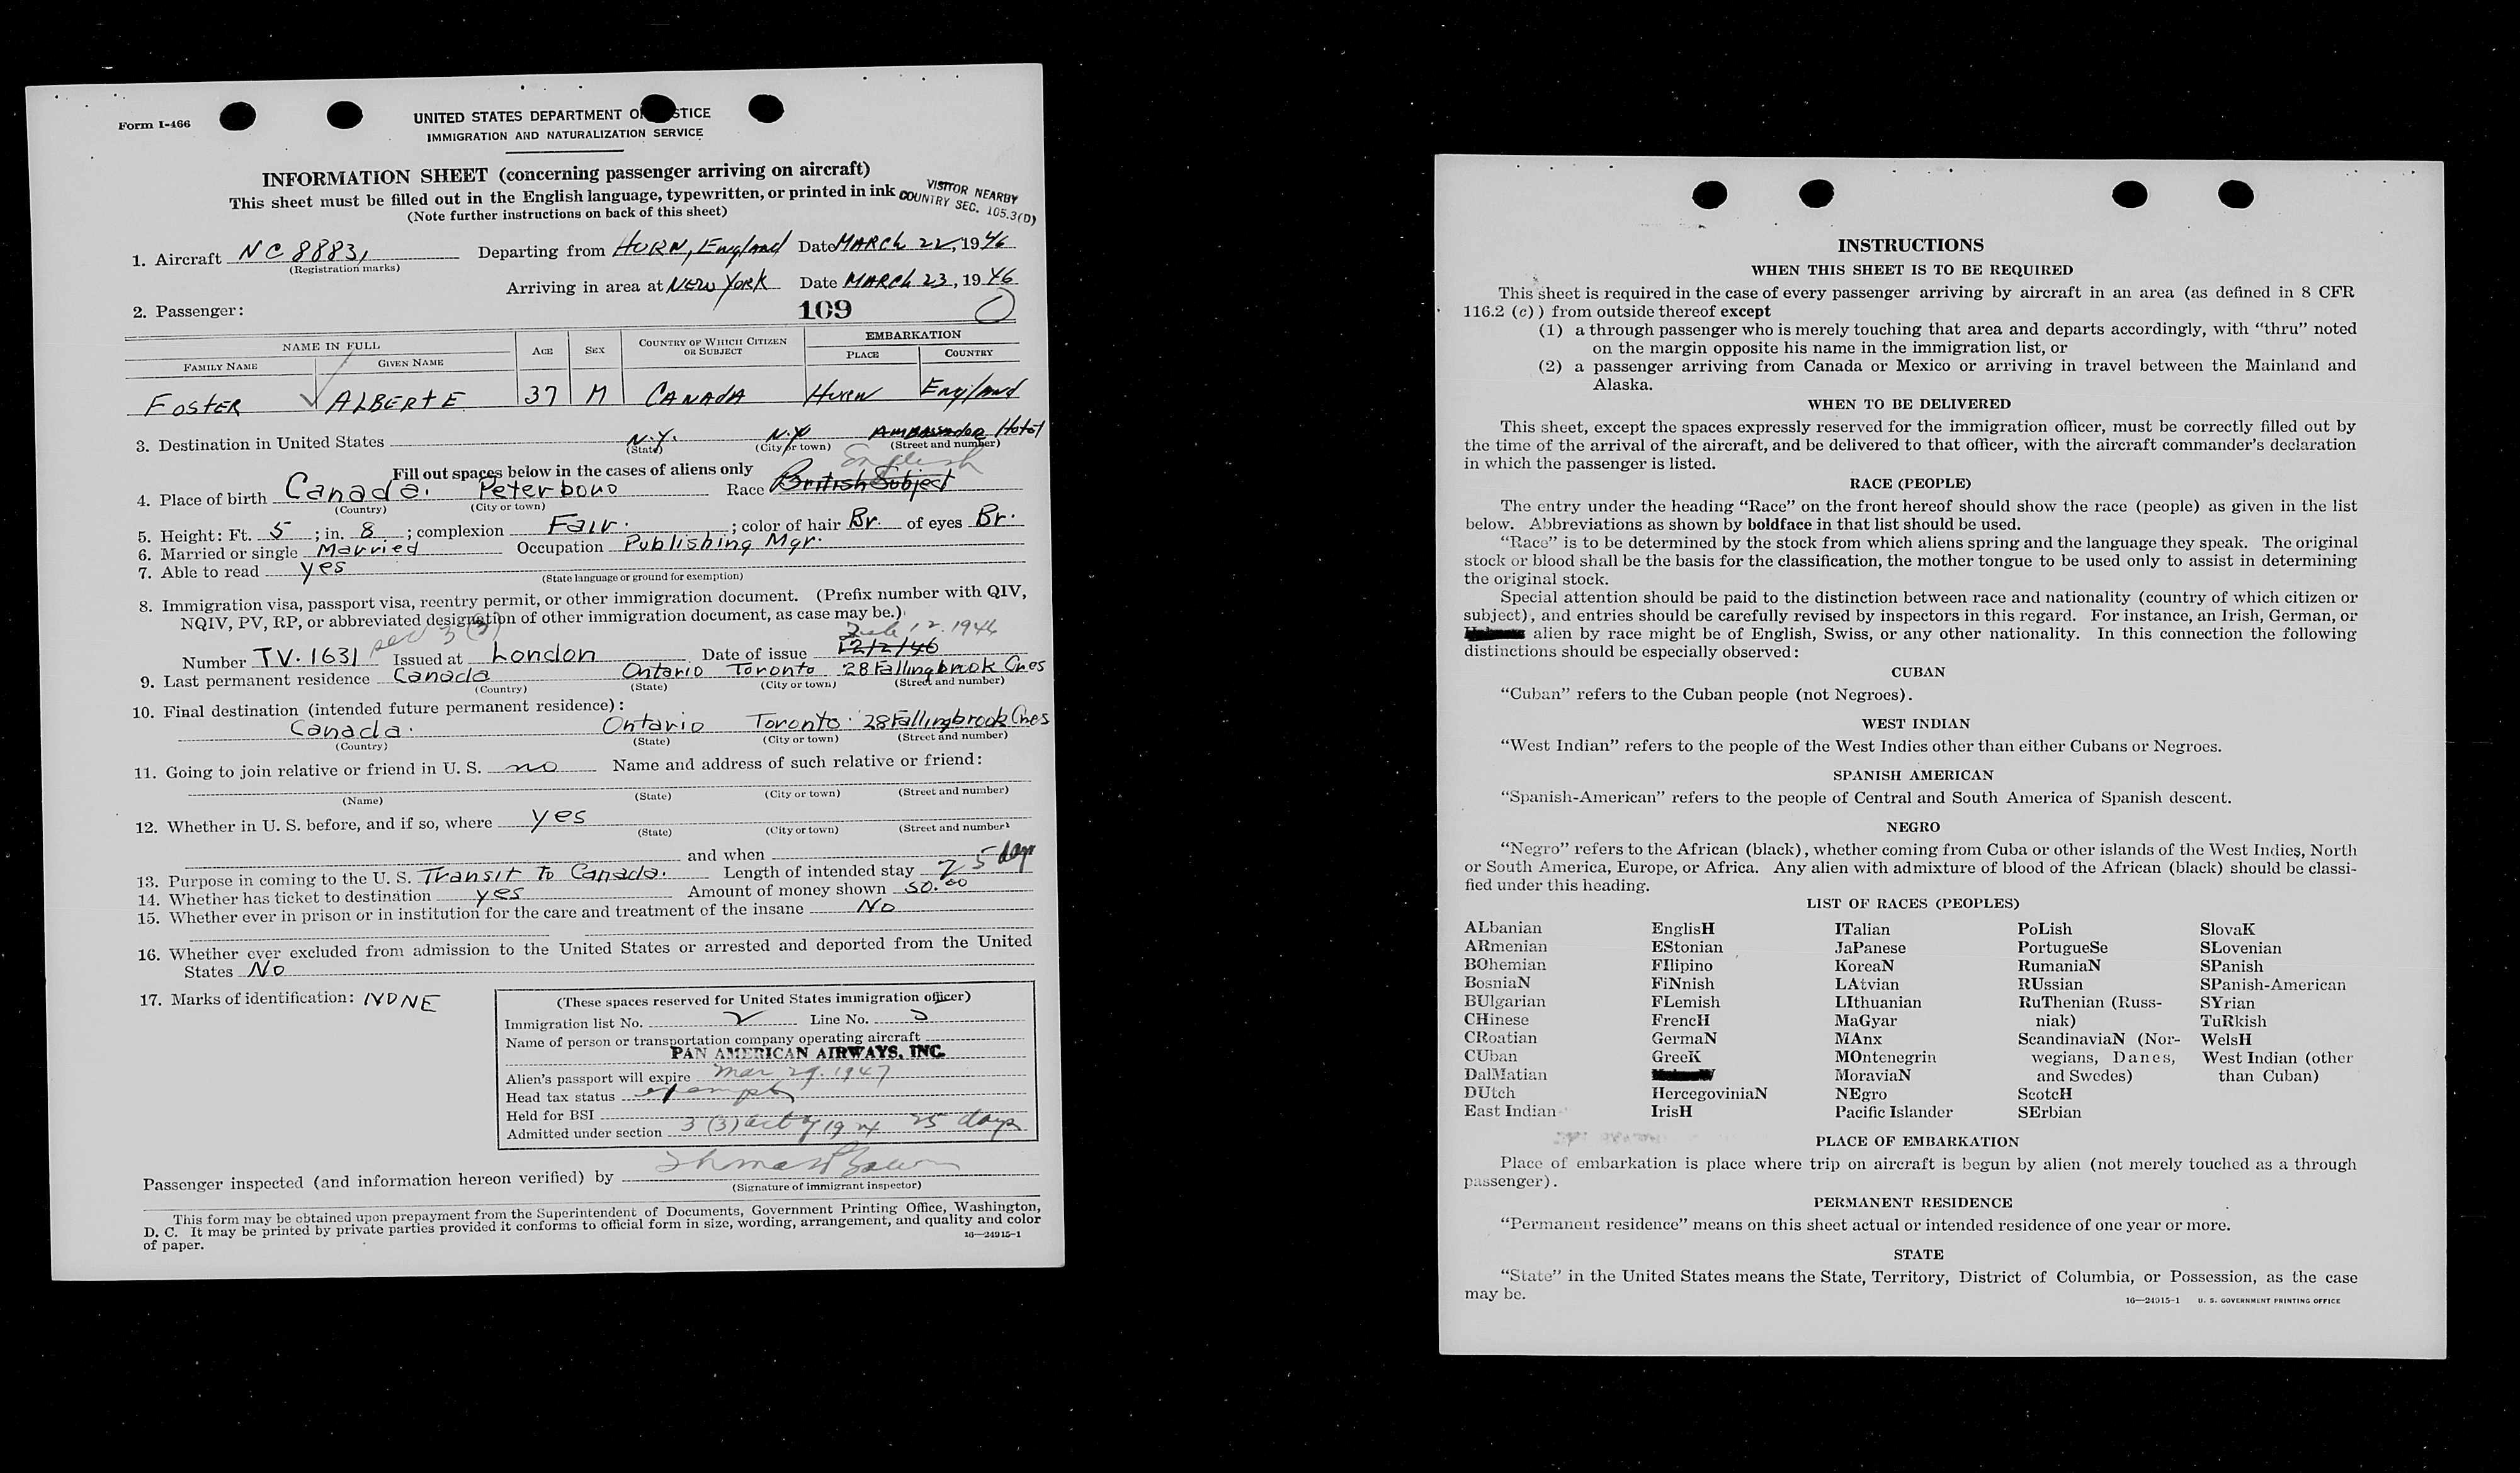 Form I-466
UNITED STATES DEPARTMENT O STICE
IMMIGRATION AND NATURALIZATION SERVICE
INFORMATION SHEET (concerning passenger arriving on aircraft)
This sheet must be filled out in the English language, typewritten, or printed in ink
(Note further instructions on back of this sheet)
VISITOR NEARBY
COUNTRY SEC. 105.3(D)
1. Aircraft NC 88831 Departing from HURN, England Date MARCh 22, 1946
(Registration marks)
Arriving in area at NEW YORK Date MARCh 23, 1946
2. Passenger: 109
NAME IN FULL AGE SEX COUNTRY OF WHICH CITIZEN OR SUBJECT EMBARKATION
FAMILY NAME GIVEN NAME PLACE COUNTRY
FOSTER ALBERT E 37 M CANADA Hurn England
3. Destination in United States N.Y. N.Y. Ambassador Hotel
(State) (City or town) (Street and number)
Fill out spaces below in the cases of aliens only English
4. Place of birth Canada. Peterboro Race British Subject
(Country) (City or town)
5. Height: Ft. 5 ; in. 8 ; complexion Fair. ; color of hair Br. of eyes Br.
6. Married or single Married Occupation Publishing Mgr.
7. Able to read yes
(State language or ground for exemption)
8. Immigration visa, passport visa, reentry permit, or other immigration document. (Prefix number with QIV,
NQIV, PV, RP, or abbreviated designation of other immigration document, as case may be.)
sec 3 (3) Feb 12. 1946
Number TV. 1631 Issued at London Date of issue 12/2/46
9. Last permanent residence Canada Ontario Toronto 28 Fallingbrook Cres
(Country) (State) (City or town) (Street and number)
10. Final destination (intended future permanent residence):
Canada. Ontario Toronto. 28 Fallingbrook Cres
(Country) (State) (City or town) (Street and number)
11. Going to join relative or friend in U. S. no Name and address of such relative or friend:
(Name) (State) (City or town) (Street and number)
12. Whether in U. S. before, and if so, where yes
(State) (City or town) (Street and number)
and when
13. Purpose in coming to the U. S. Transit to Canada. Length of intended stay 25 days
14. Whether has ticket to destination yes Amount of money shown 50.00
15. Whether ever in prison or in institution for the care and treatment of the insane No
16. Whether ever excluded from admission to the United States or arrested and deported from the United
States No
17. Marks of identification: NONE
(These spaces reserved for United States immigration officer)
Immigration list No. 2 Line No. 5
Name of person or transportation company operating aircraft
PAN AMERICAN AIRWAYS, INC.
Alien's passport will expire Mar 29. 1947
Head tax status exempt
Held for BSI
Admitted under section 3 (3) act of 1924 25 days
Passenger inspected (and information hereon verified) by
(Signature of immigrant inspector)
This form may be obtained upon prepayment from the Superintendent of Documents, Government Printing Office, Washington,
D. C. It may be printed by private parties provided it conforms to official form in size, wording, arrangement, and quality and color
of paper. 16—24915-1
INSTRUCTIONS
WHEN THIS SHEET IS TO BE REQUIRED
This sheet is required in the case of every passenger arriving by aircraft in an area (as defined in 8 CFR
116.2 (c)) from outside thereof except
(1) a through passenger who is merely touching that area and departs accordingly, with "thru" noted
on the margin opposite his name in the immigration list, or
(2) a passenger arriving from Canada or Mexico or arriving in travel between the Mainland and
Alaska.
WHEN TO BE DELIVERED
This sheet, except the spaces expressly reserved for the immigration officer, must be correctly filled out by
the time of the arrival of the aircraft, and be delivered to that officer, with the aircraft commander's declaration
in which the passenger is listed.
RACE (PEOPLE)
The entry under the heading "Race" on the front hereof should show the race (people) as given in the list
below. Abbreviations as shown by boldface in that list should be used.
"Race" is to be determined by the stock from which aliens spring and the language they speak. The original
stock or blood shall be the basis for the classification, the mother tongue to be used only to assist in determining
the original stock.
Special attention should be paid to the distinction between race and nationality (country of which citizen or
subject), and entries should be carefully revised by inspectors in this regard. For instance, an Irish, German, or
alien by race might be of English, Swiss, or any other nationality. In this connection the following
distinctions should be especially observed:
CUBAN
"Cuban" refers to the Cuban people (not Negroes).
WEST INDIAN
"West Indian" refers to the people of the West Indies other than either Cubans or Negroes.
SPANISH AMERICAN
"Spanish-American" refers to the people of Central and South America of Spanish descent.
NEGRO
"Negro" refers to the African (black), whether coming from Cuba or other islands of the West Indies, North
or South America, Europe, or Africa. Any alien with admixture of blood of the African (black) should be classi-
fied under this heading.
LIST OF RACES (PEOPLES)
ALbanian EnglisH ITalian PoLish SlovaK
ARmenian EStonian JaPanese PortugueSe SLovenian
BOhemian FIlipino KoreaN RumaniaN SPanish
BosniaN FiNnish LAtvian RUssian SPanish-American
BUlgarian FLemish LIthuanian RuThenian (Russ- SYrian
CHinese FrencH MaGyar niak) TuRkish
CRoatian GermaN MAnx ScandinaviaN (Nor- WelsH
CUban GreeK MOntenegrin wegians, Danes, West Indian (other
DalMatian MoraviaN and Swedes) than Cuban)
DUtch HercegoviniaN NEgro ScotcH
East Indian IrisH Pacific Islander SErbian
PLACE OF EMBARKATION
Place of embarkation is place where trip on aircraft is begun by alien (not merely touched as a through
passenger).
PERMANENT RESIDENCE
"Permanent residence" means on this sheet actual or intended residence of one year or more.
STATE
"State" in the United States means the State, Territory, District of Columbia, or Possession, as the case
may be.
16—24915-1 U. S. GOVERNMENT PRINTING OFFICE